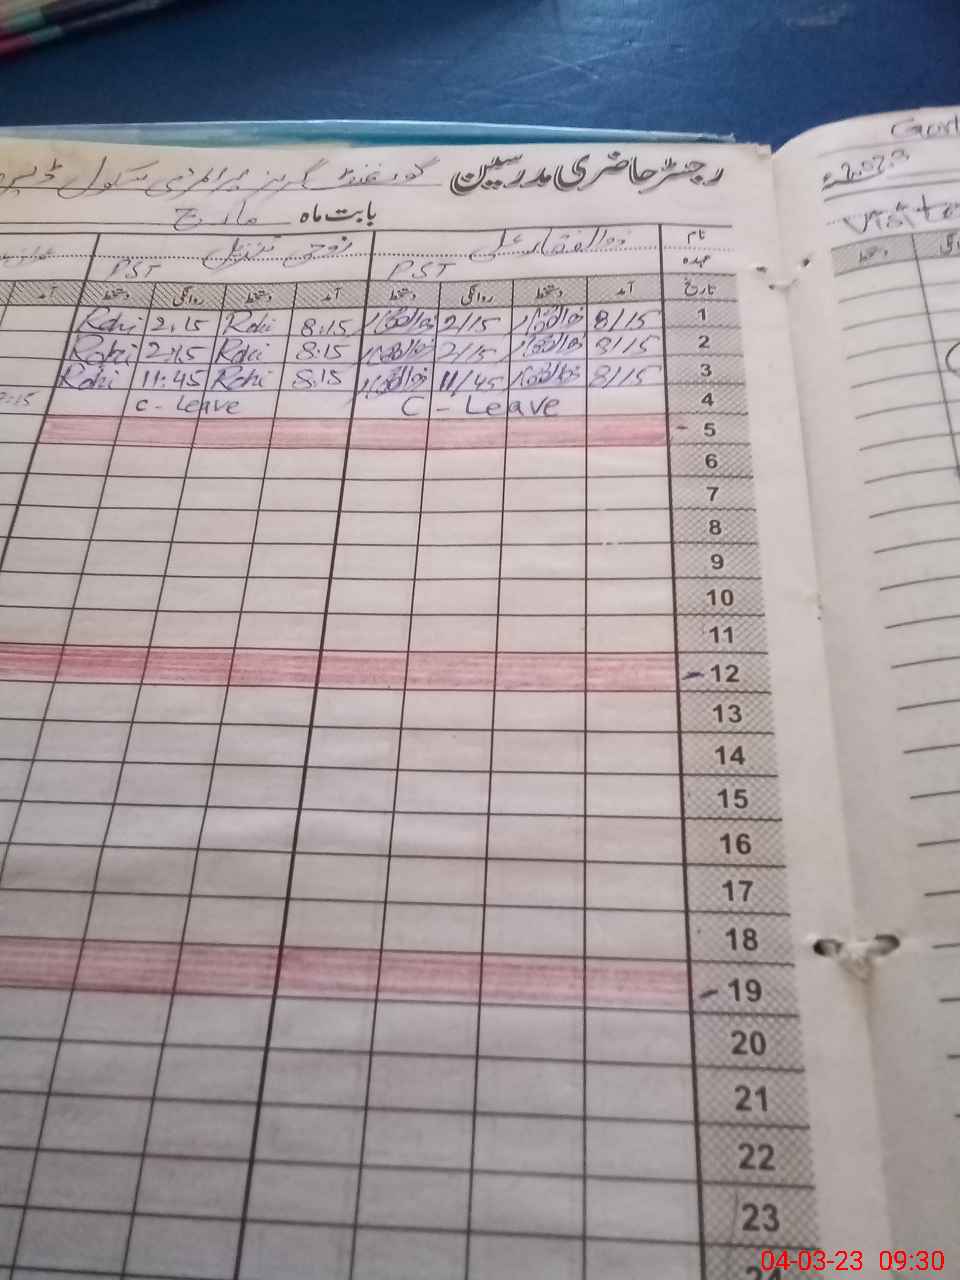 رجسٹر حاضری مدرسین گورنمنٹ گرلز پرائمری سکول
بابت ماہ مارچ
نام ذوالفقار علی روحی
عہدہ PST PST
تاریخ آمد دستخط روانگی دستخط آمد دستخط روانگی دستخط آمد
1 8/15 ذوالفقار 2/15 ذوالفقار 8:15 Rohi 2:15 Rohi
2 8/15 ذوالفقار 2/15 ذوالفقار 8:15 Rohi 2:15 Rohi
3 8/15 ذوالفقار 11/45 ذوالفقار 8:15 Rohi 11:45 Rohi
4 C - Leave C - Leave
5
6
7
8
9
10
11
12
13
14
15
16
17
18
19
20
21
22
23
24
2023
دستخط
04-03-23 09:30